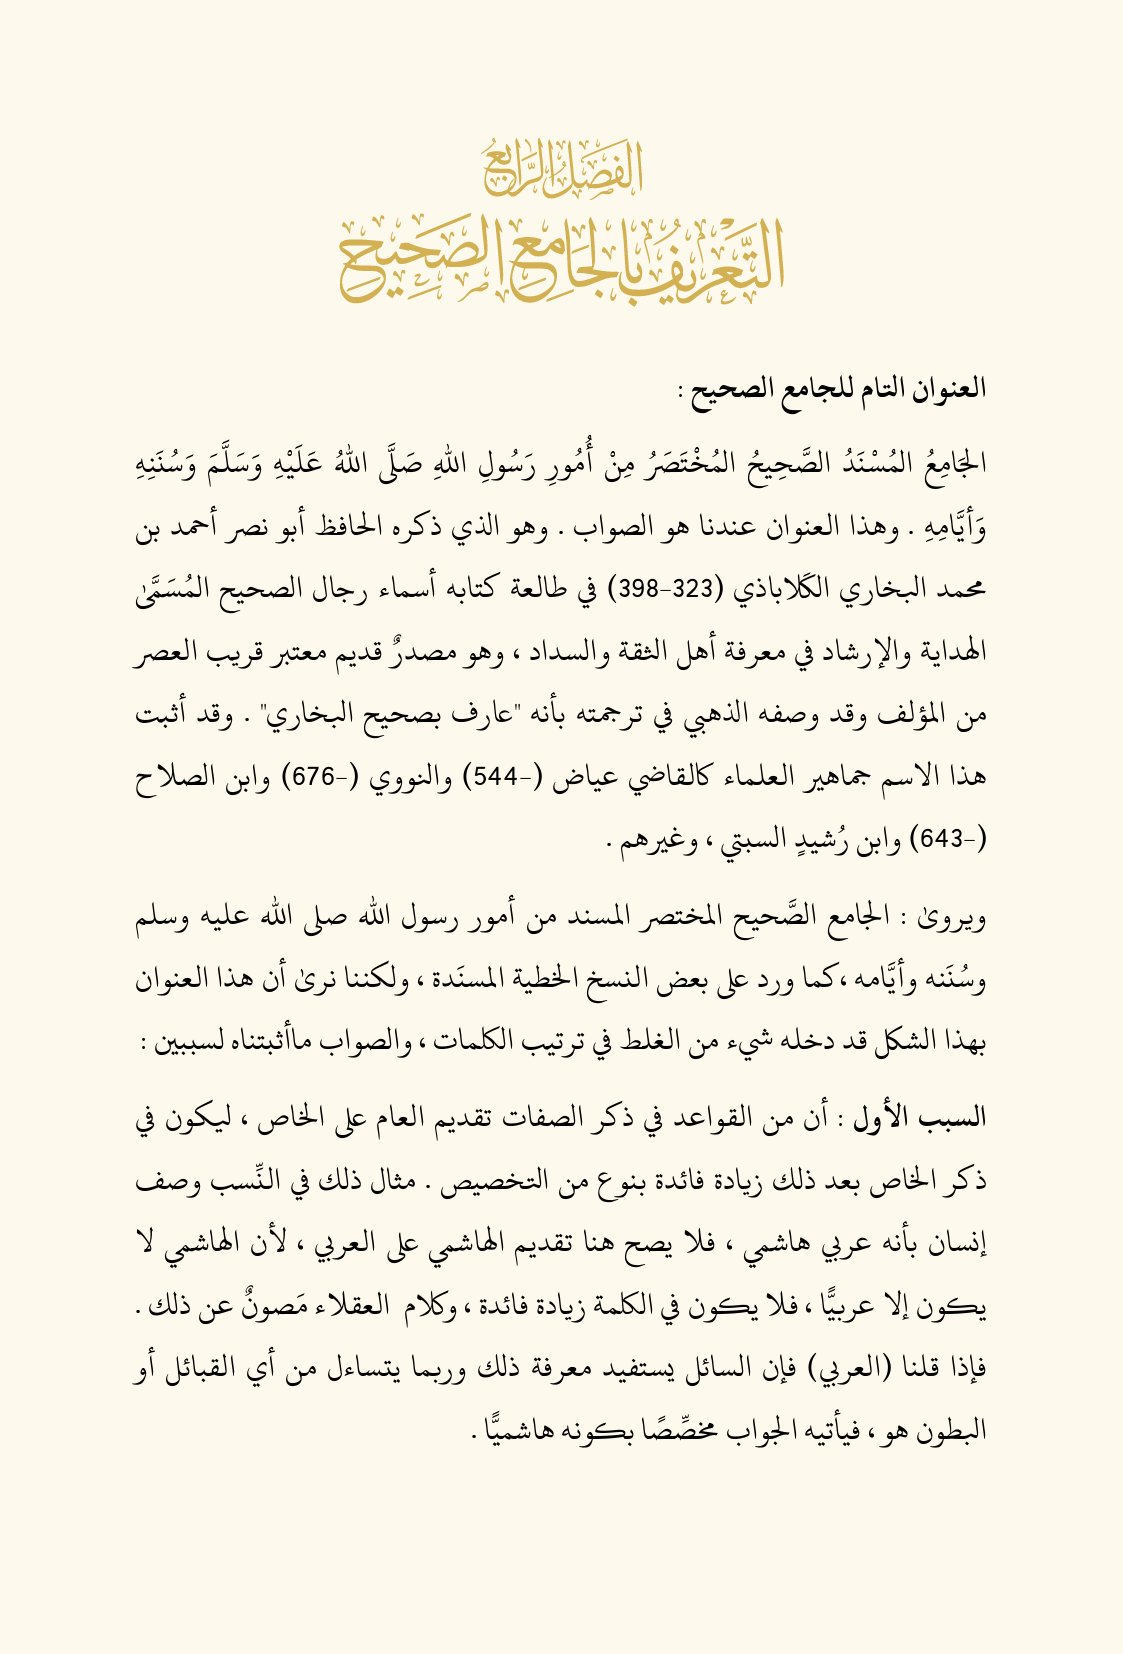 الفَصْلُ الرَّابِعُ
التَّعْرِيفُ بِالجَامِعِ الصَّحِيحِ
العنوان التام للجامع الصحيح :
الجَامِعُ المُسْنَدُ الصَّحِيحُ المُخْتَصَرُ مِنْ أُمُورِ رَسُولِ اللهِ صَلَّى اللهُ عَلَيْهِ وَسَلَّمَ وَسُنَنِهِ
وَأيَّامِهِ . وهذا العنوان عندنا هو الصواب . وهو الذي ذكره الحافظ أبو نصر أحمد بن
محمد البخاري الكَلاباذي (323-398) في طالعة كتابه أسماء رجال الصحيح المُسَمَّىٰ
الهداية والإرشاد في معرفة أهل الثقة والسداد ، وهو مصدرٌ قديم معتبر قريب العصر
من المؤلف وقد وصفه الذهبي في ترجمته بأنه "عارف بصحيح البخاري" . وقد أثبت
هذا الاسم جماهير العلماء كالقاضي عياض (-544) والنووي (-676) وابن الصلاح
(-643) وابن رُشيدٍ السبتي ، وغيرهم .
ويروىٰ : الجامع الصَّحيح المختصر المسند من أمور رسول الله صلى الله عليه وسلم
وسُنَنه وأيَّامه ،كما ورد على بعض النسخ الخطية المسنَدة ، ولكننا نرىٰ أن هذا العنوان
بهذا الشكل قد دخله شيء من الغلط في ترتيب الكلمات ، والصواب ماأثبتناه لسببين :
السبب الأول : أن من القواعد في ذكر الصفات تقديم العام على الخاص ، ليكون في
ذكر الخاص بعد ذلك زيادة فائدة بنوع من التخصيص . مثال ذلك في النِّسب وصف
إنسان بأنه عربي هاشمي ، فلا يصح هنا تقديم الهاشمي على العربي ، لأن الهاشمي لا
يكون إلا عربيًّا ، فلا يكون في الكلمة زيادة فائدة ، وكلام العقلاء مَصونٌ عن ذلك .
فإذا قلنا (العربي) فإن السائل يستفيد معرفة ذلك وربما يتساءل من أي القبائل أو
البطون هو ، فيأتيه الجواب مخصِّصًا بكونه هاشميًّا .